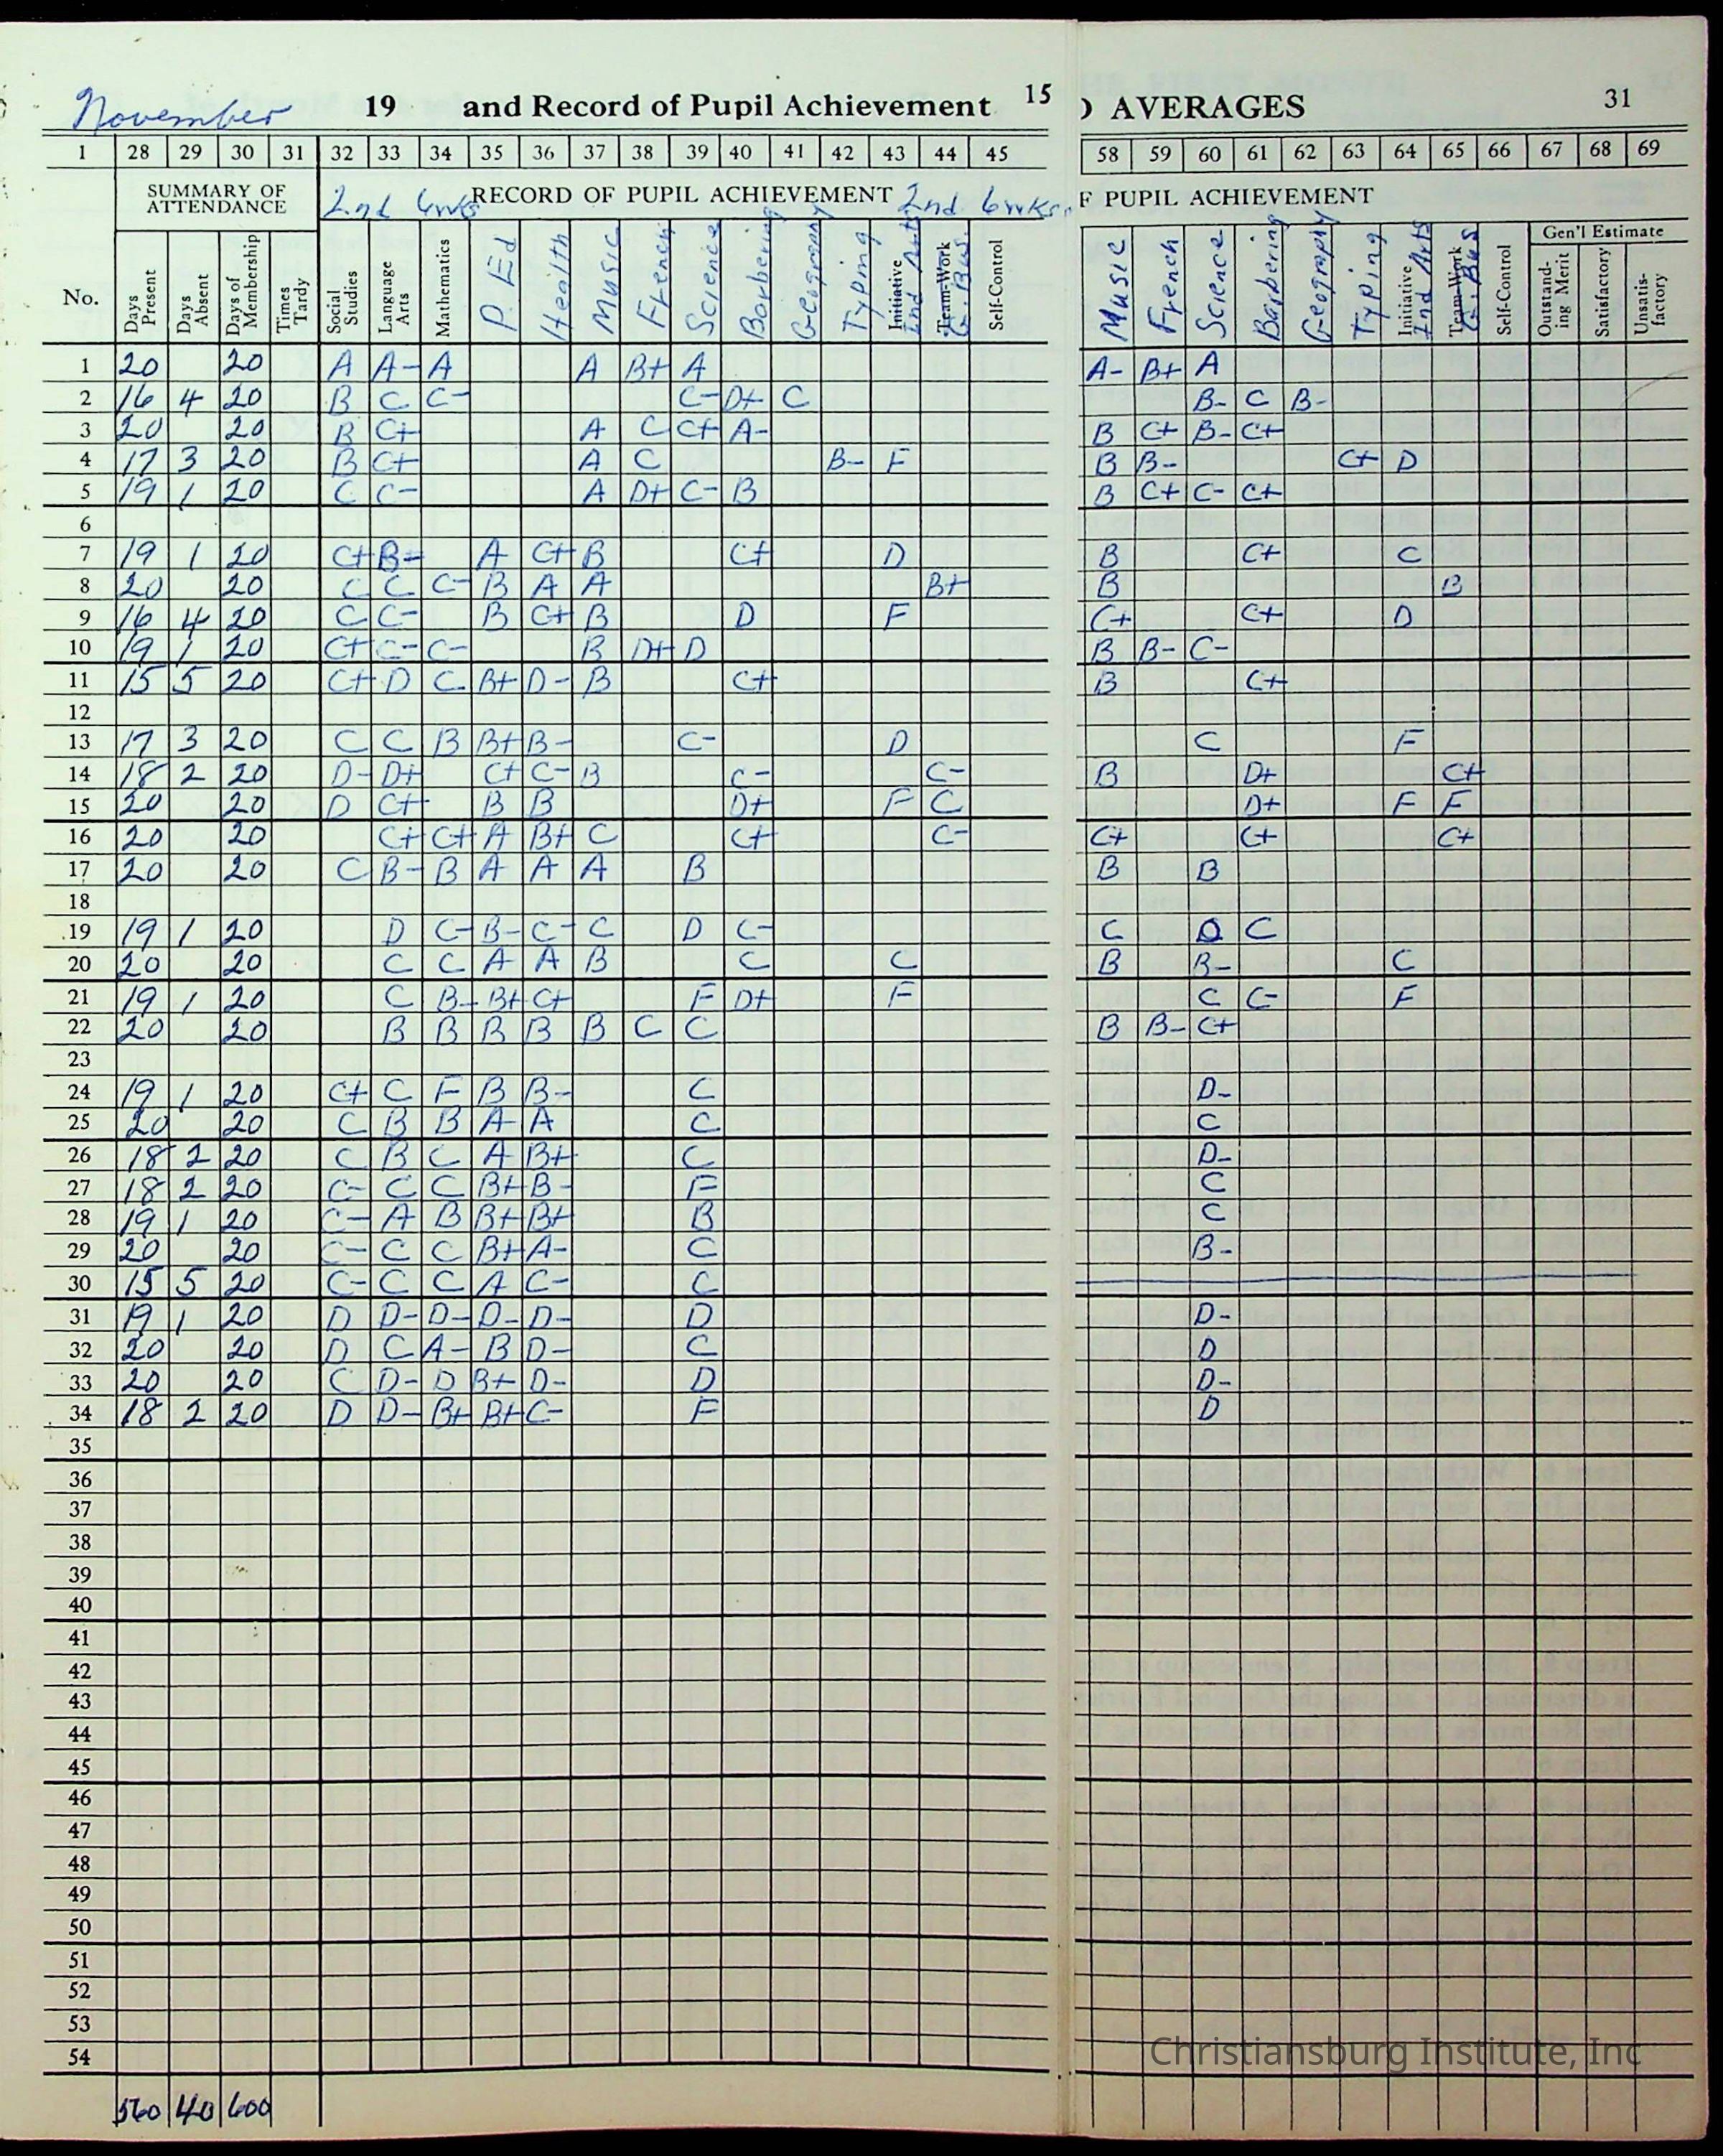 November 19 and Record of Pupil Achievement 15 ) AVERAGES 31
1 28 29 30 31 32 33 34 35 36 37 38 39 40 41 42 43 44 45 58 59 60 61 62 63 64 65 66 67 68 69
SUMMARY OF ATTENDANCE 2nd 6wks RECORD OF PUPIL ACHIEVEMENT 2nd 6wks. F PUPIL ACHIEVEMENT
Gen'l Estimate
No. Days Present Days Absent Days of Membership Times Tardy Social Studies Language Arts Mathematics P. Ed Health Music French Science Barbering Geography Typing Initiative Ind Arts Team-Work G. Bus. Self-Control Music French Science Barbering Geography Typing Initiative Ind Arts Team-Work G. Bus Self-Control Outstanding Merit Satisfactory Unsatisfactory
1 20 20 A A- A A B+ A A- B+ A
2 16 4 20 B C C- C- D+ C B- C B-
3 20 20 B C+ A C C+ A- B C+ B- C+
4 17 3 20 B C+ A C B- F B B- C+ D
5 19 1 20 C C- A D+ C- B B C+ C- C+
6
7 19 1 20 C+ B- A C+ B C+ D B C+ C
8 20 20 C C C- B A A B+ B B
9 16 4 20 C C- B C+ B D F C+ C+ D
10 19 1 20 C+ C- C- B D+ D B B- C-
11 15 5 20 C+ D C B+ D- B C+ B C+
12
13 17 3 20 C C B B+ B- C- D C F
14 18 2 20 D- D+ C+ C- B C- C- B D+ C+
15 20 20 D C+ B B D+ F C D+ F F
16 20 20 C+ C+ A B+ C C+ C- C+ C+ C+
17 20 20 C B- B A A A B B B
18
19 19 1 20 D C- B- C- C D C- C D C
20 20 20 C C A A B C C B B- C
21 19 1 20 C B- B+ C+ F D+ F C C- F
22 20 20 B B B B B C C B B- C+
23
24 19 1 20 C+ C F B B- C D-
25 20 20 C B B A A C C
26 18 2 20 C B C A B+ C D-
27 18 2 20 C- C C B+ B- F C
28 19 1 20 C- A B B+ B+ B C
29 20 20 C- C C B+ A- C B-
30 15 5 20 C- C C A C- C
31 19 1 20 D D- D- D- D- D D-
32 20 20 D C A- B D- C D
33 20 20 C D- D B+ D- D D-
34 18 2 20 D D- B+ B+ C- F D
35
36
37
38
39
40
41
42
43
44
45
46
47
48
49
50
51
52
53
54
Christiansburg Institute, Inc
560 40 600